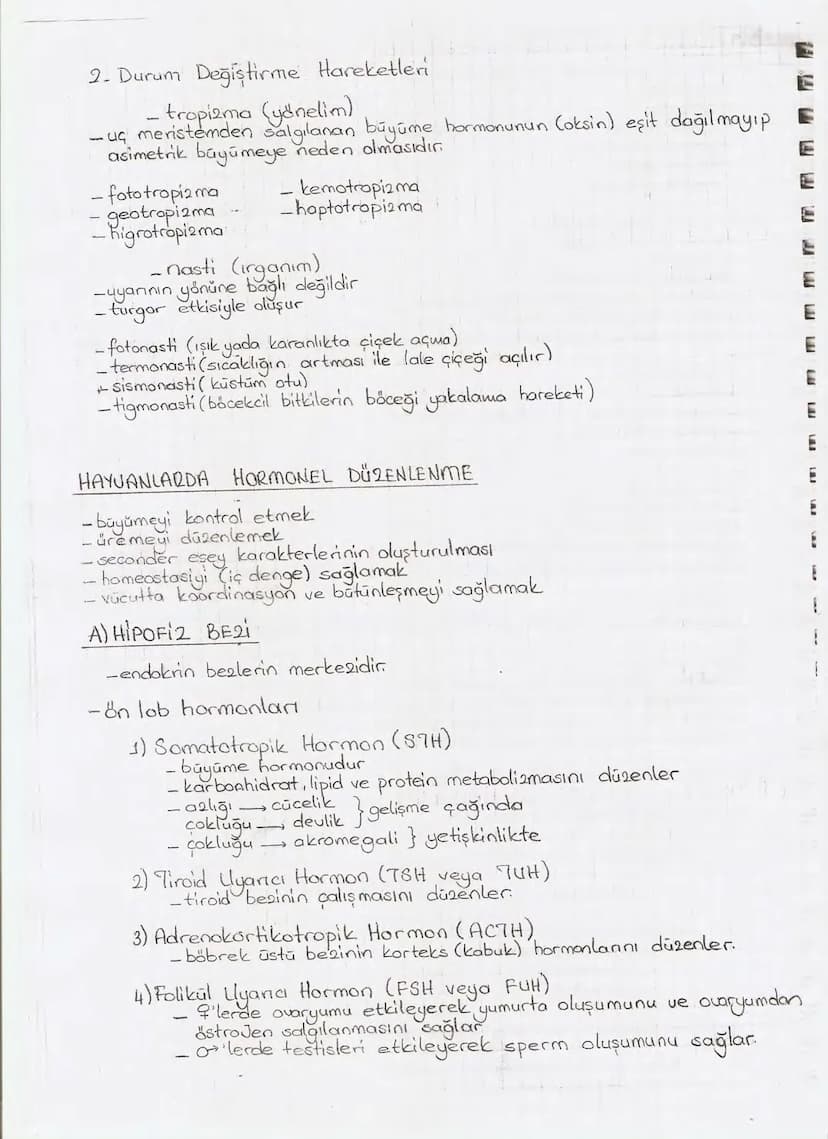 2- Durum Değiştirme Hareketleri
- tropizma (yönelim)
- uç meristemden salgılanan büyüme hormonunun (oksin) eşit dağılmayıp
asimetrik büyümeye neden olmasıdır.
- fototropizma - kemotropizma
- geotropizma - haptotropizma
- higrotropizma
- nasti (ırganım)
- uyarının yönüne bağlı değildir
- turgor etkisiyle oluşur
- fotonasti (ışık yada karanlıkta çiçek açma)
- termonasti (sıcaklığın artması ile lale çiçeği açılır)
- sismonasti (küstüm otu)
- tigmonasti (böcekcil bitkilerin böceği yakalama hareketi)
HAYVANLARDA HORMONEL DÜZENLENME
- büyümeyi kontrol etmek
- üremeyi düzenlemek
- seconder eşey karakterlerinin oluşturulması
- homeostasiyi (iç denge) sağlamak
- vücutta koordinasyon ve bütünleşmeyi sağlamak
A) HİPOFİZ BEZİ
- endokrin bezlerin merkezidir.
- ön lob hormonları
1) Somatotropik Hormon (STH)
- büyüme hormonudur
- karbonhidrat, lipid ve protein metabolizmasını düzenler
- azlığı → cücelik } gelişme çağında
çokluğu → devlik
- çokluğu → akromegali } yetişkinlikte
2) Tiroid Uyarıcı Hormon (TSH veya TUH)
- tiroid bezinin çalışmasını düzenler.
3) Adrenokortikotropik Hormon (ACTH)
- böbrek üstü bezinin korteks (kabuk) hormonlarını düzenler.
4) Folikül Uyarıcı Hormon (FSH veya FUH)
- ♀'lerde ovaryumu etkileyerek yumurta oluşumunu ve ovaryumdan
östrojen salgılanmasını sağlar
- ♂'lerde testisleri etkileyerek sperm oluşumunu sağlar.